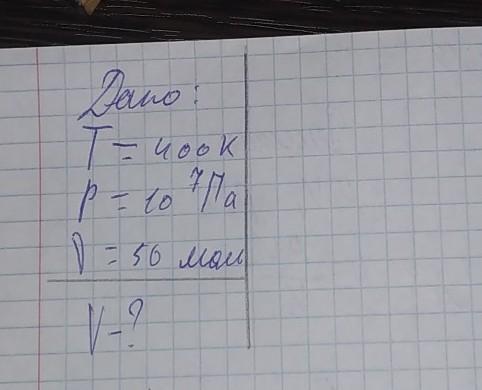 Дано:
T = 400К
P = 10⁷Па
ν = 50 моль
V - ?